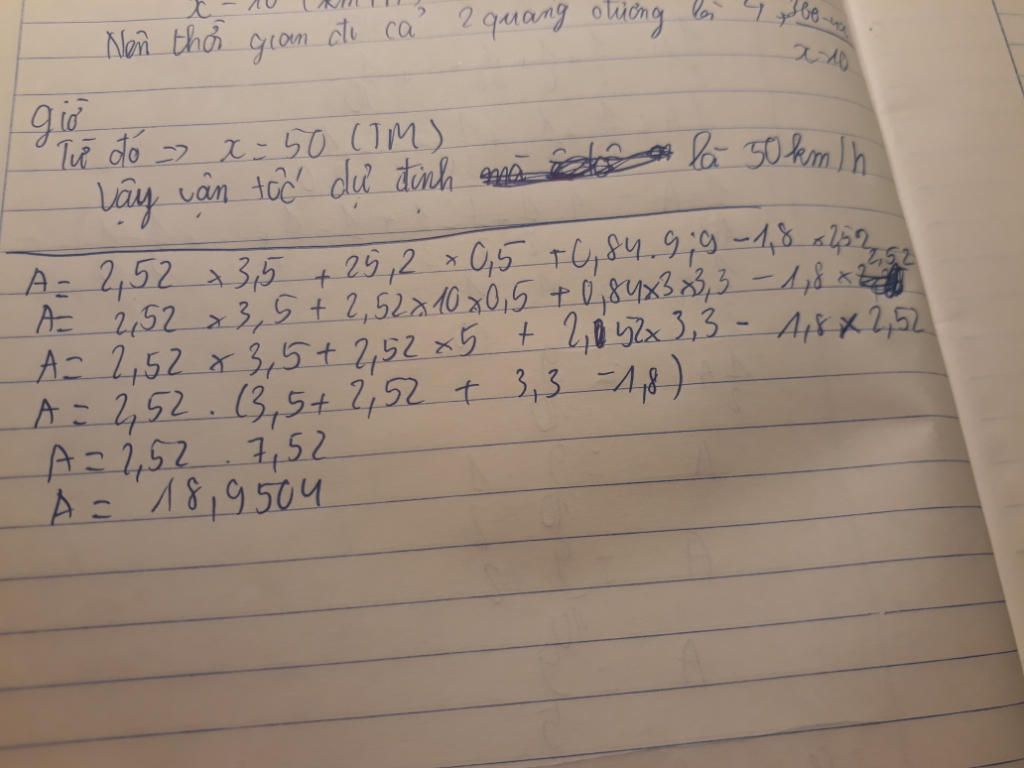 x = 10
Nên thời gian đi cả 2 quang đường là 4 +
x-10
giờ
Từ đó => x = 50 (TM)
Vậy vận tốc dự định là 50km/h
A = 2,52 × 3,5 + 25,2 × 0,5 + 0,84 . 9,9 - 1,8 × 2,52
A = 2,52 × 3,5 + 2,52 × 10 × 0,5 + 0,84 × 3 × 3,3 - 1,8 × 2,52
A = 2,52 × 3,5 + 2,52 × 5 + 2,52 × 3,3 - 1,8 × 2,52
A = 2,52 . (3,5 + 2,52 + 3,3 - 1,8)
A = 2,52 . 7,52
A = 18,9504